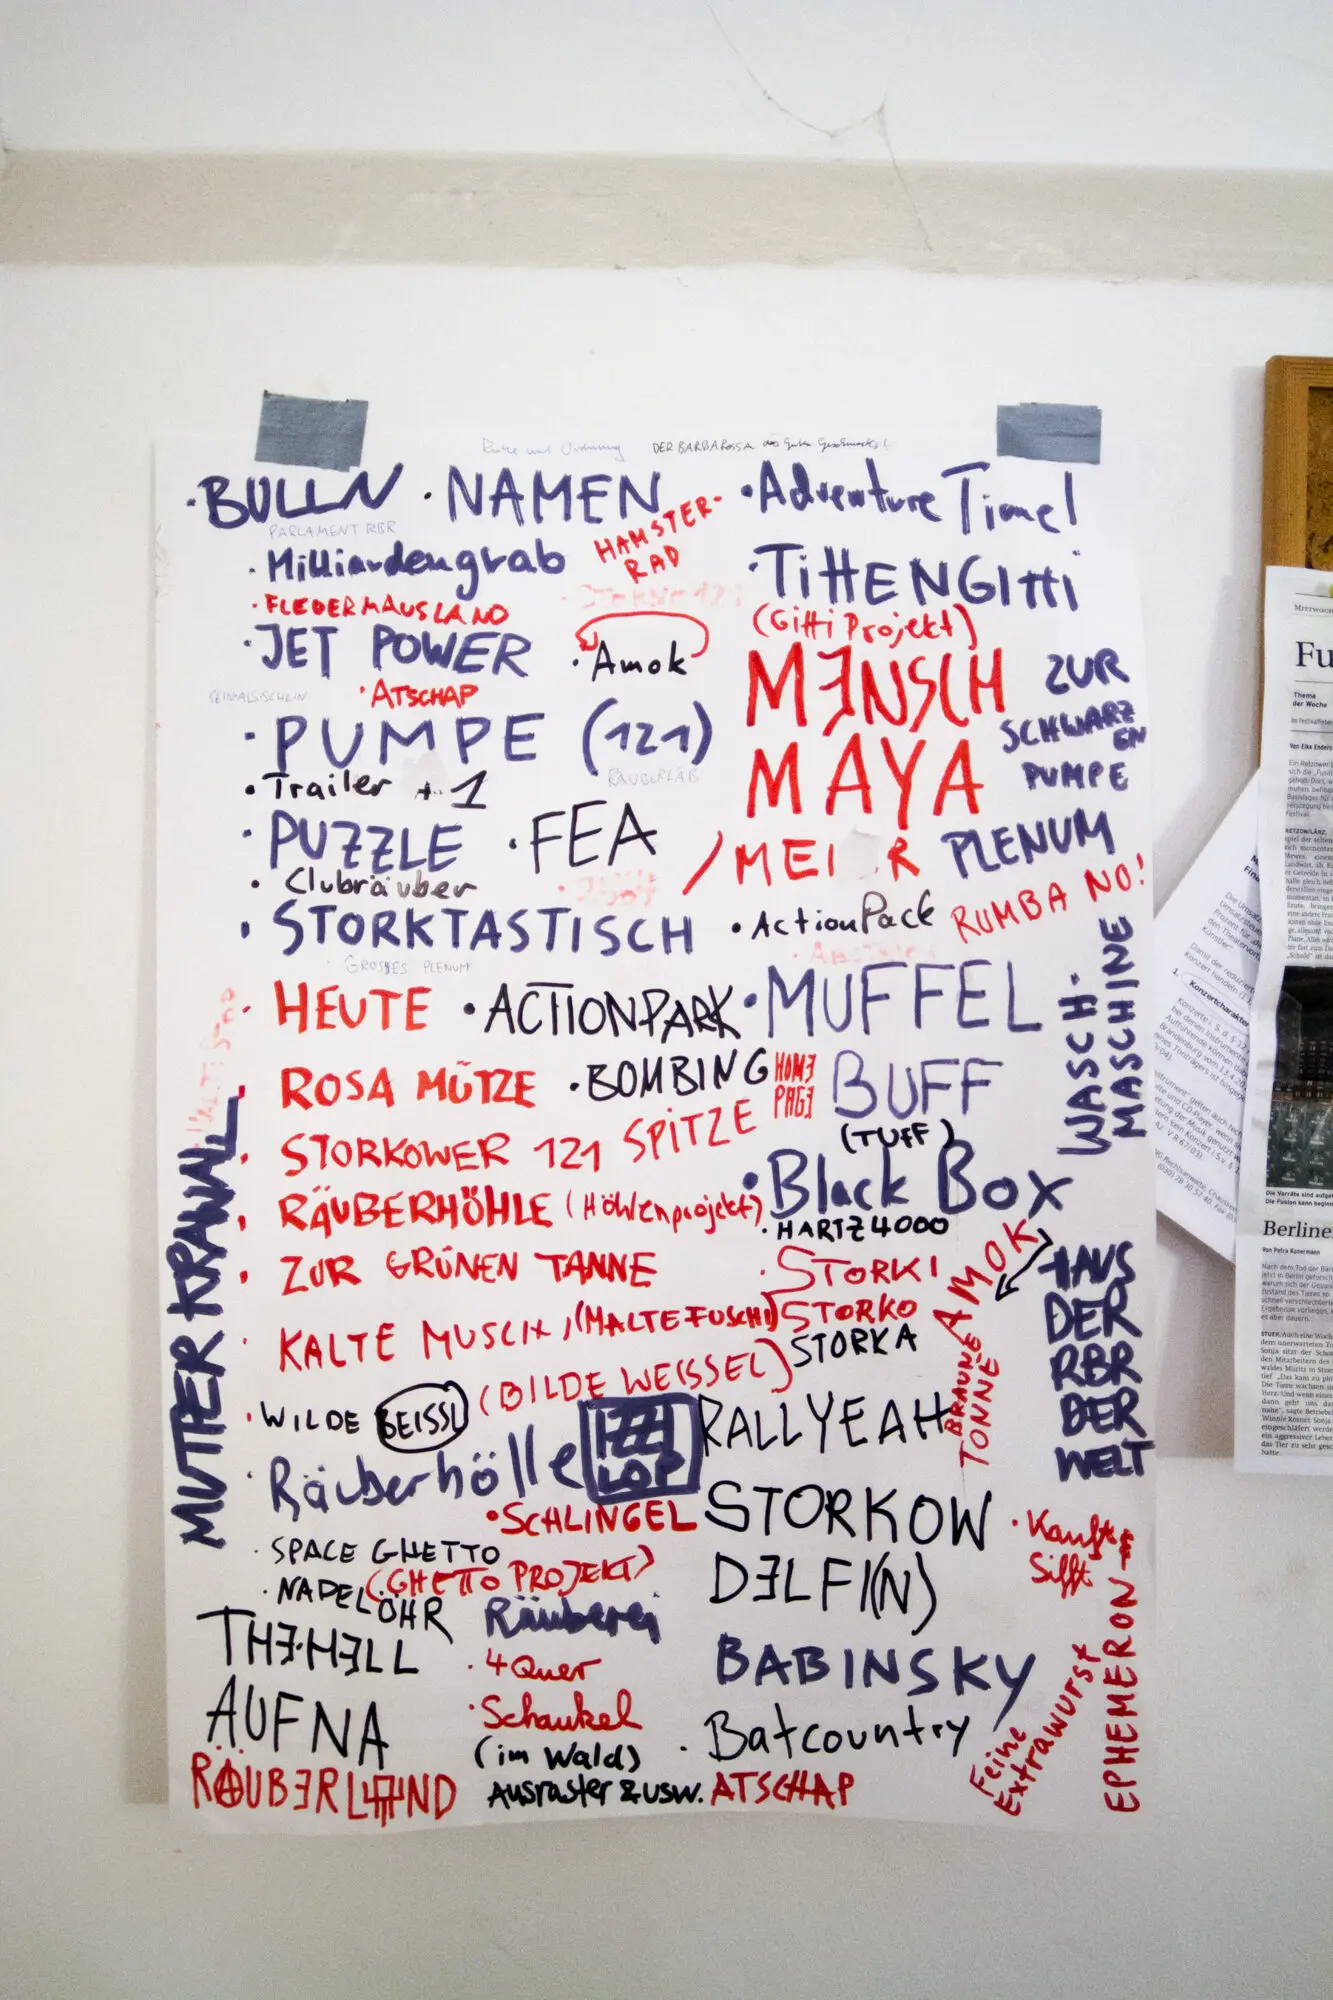 DER BARBAROSSA des guten Geschmacks!
· BULLN · NAMEN
· Adventure Time!
PARLAMENT RBR
HAMSTER-
RAD
· Milliardengrab
· TITTENGITTI
· FLEDERMAUSLAND
(Gitti Projekt)
· JET POWER
· Amok
MENSCH
MAYA
/MEI R
ZUR
SCHWARZ
EN
PUMPE
PLENUM
· ATSCHAP
· PUMPE (121)
RÄUBERLAB
· Trailer + 1
· PUZZLE · FEA
· Clubräuber
RUMBA NO!
· STORKTASTISCH
· ActionPack
GROSSES PLENUM
WASCH-
MASCHINE
· HEUTE · ACTIONPARK
· MUFFEL
BUFF
(TUFF)
· ROSA MÜTZE · BOMBING
HOME
PAGE
· STORKOWER 121 SPITZE
· Black Box
· RÄUBERHÖHLE (Höhlenprojekt)
· HARTZ4000
· ZUR GRÜNEN TANNE
· STORKI
STORKO
STORKA
AMOK
BRAUNE
TONNE
HAUS
DER
RBR
DER
WELT
MUTTER KRAWALL
KALTE MUSCH, (MALTE FUSCH)
(BILDE WEISSEL)
· WILDE BEISSL
· Räuberhölle
IZZI
LOP
RALLYEAH
· SCHLINGEL
STORKOW
DELFI(N)
· Kanft &
Sifft
· SPACE GHETTO
(GHETTO PROJEKT)
· NADELÖHR
THE·HELL
Räuberei
BABINSKY
· 4Quer
AUFNA
· Schaukel
(im Wald)
· Batcountry
RÄUBERLAND
Ausraster & usw.
ATSCHAP
Feine
Extrawurst
EPHEMERON
Fu
Thema
der Woche
Konzertcharakter
Berline